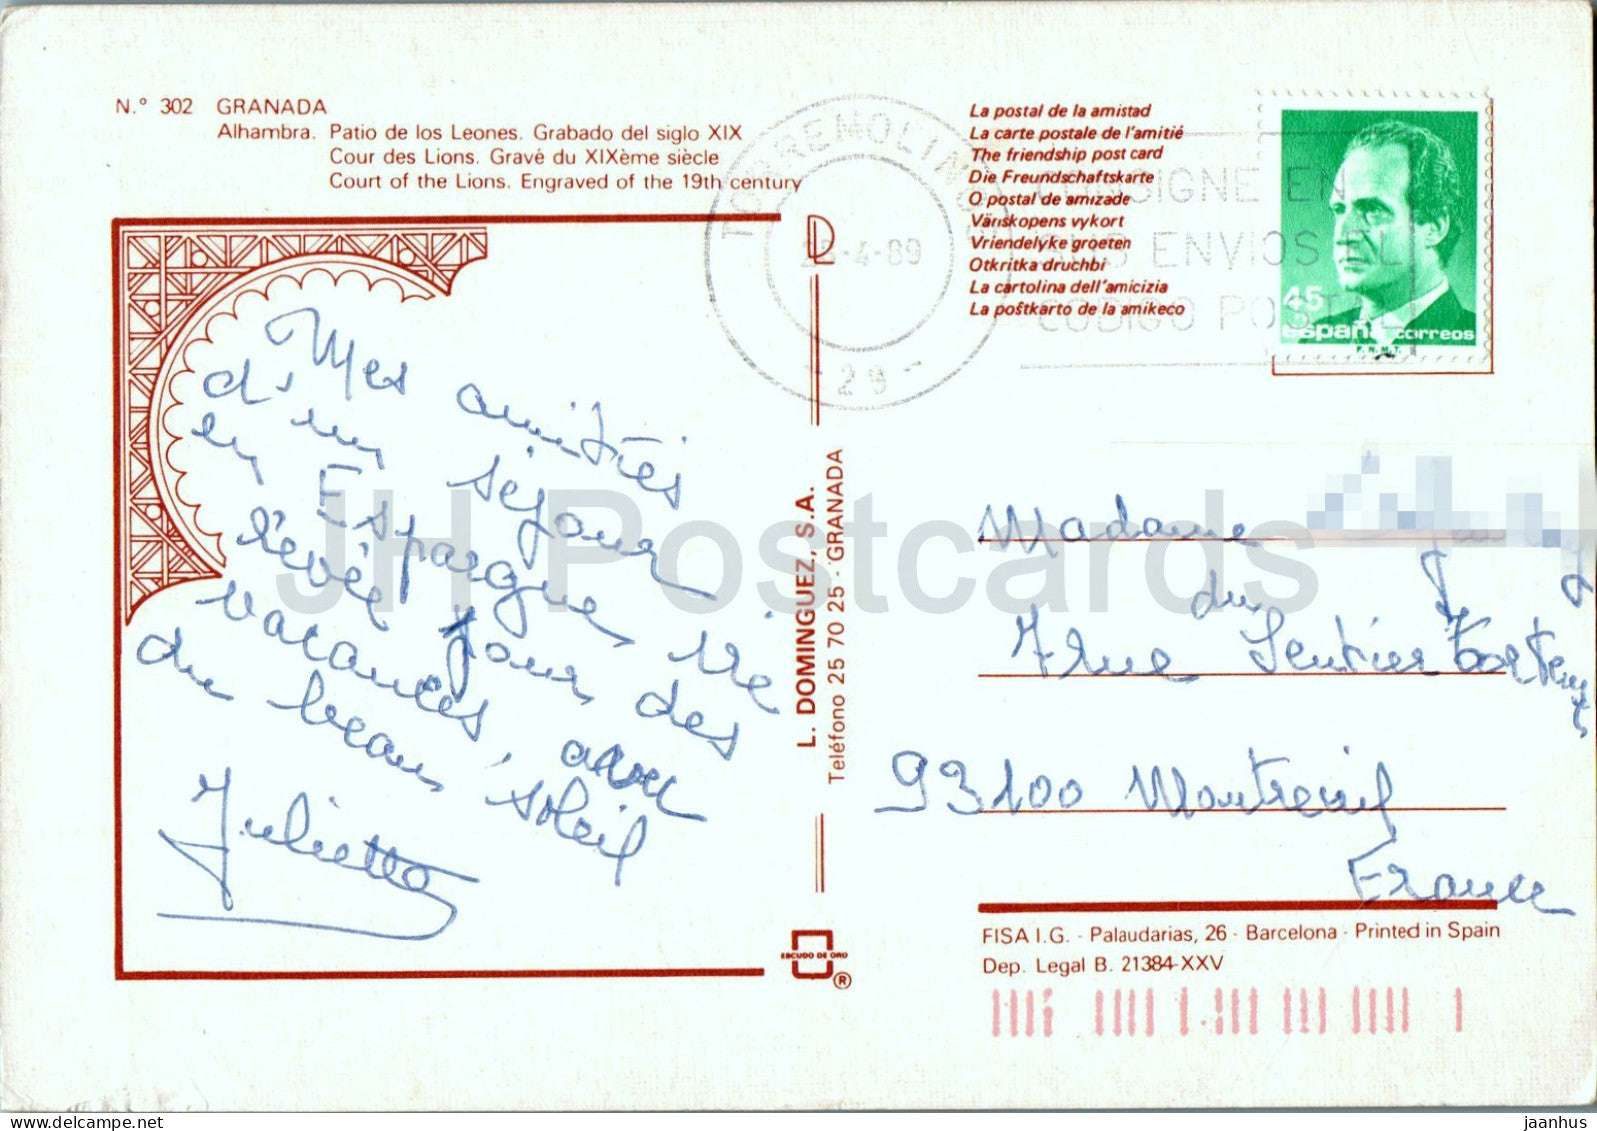 N.º 302 GRANADA
Alhambra. Patio de los Leones. Grabado del siglo XIX
Cour des Lions. Gravé du XIXème siècle
Court of the Lions. Engraved of the 19th century
TORREMOLINOS
-4-89
- 29 -
La postal de la amistad
La carte postale de l'amitié
The friendship post card
Die Freundschaftskarte
O postal de amizade
Vänskopens vykort
Vriendelyke groeten
Otkritka druchbi
La cartolina dell'amicizia
La poŝtkarto de la amikeco
CONSIGNE EN
SUS ENVIOS EL
CODIGO POST
45
españa correos
F.N.M.T.
Mes amitiés
d'un séjour
en Espagne,
vacances, avec
du beau soleil
Julietta
L. DOMINGUEZ, S.A.
Teléfono 25 70 25 - GRANADA
Madame
7 rue du Sentier
93100 Montreuil
France
ESCUDO DE ORO
®
FISA I.G. - Palaudarias, 26 - Barcelona - Printed in Spain
Dep. Legal B. 21384-XXV
JH Postcards
jaanhus